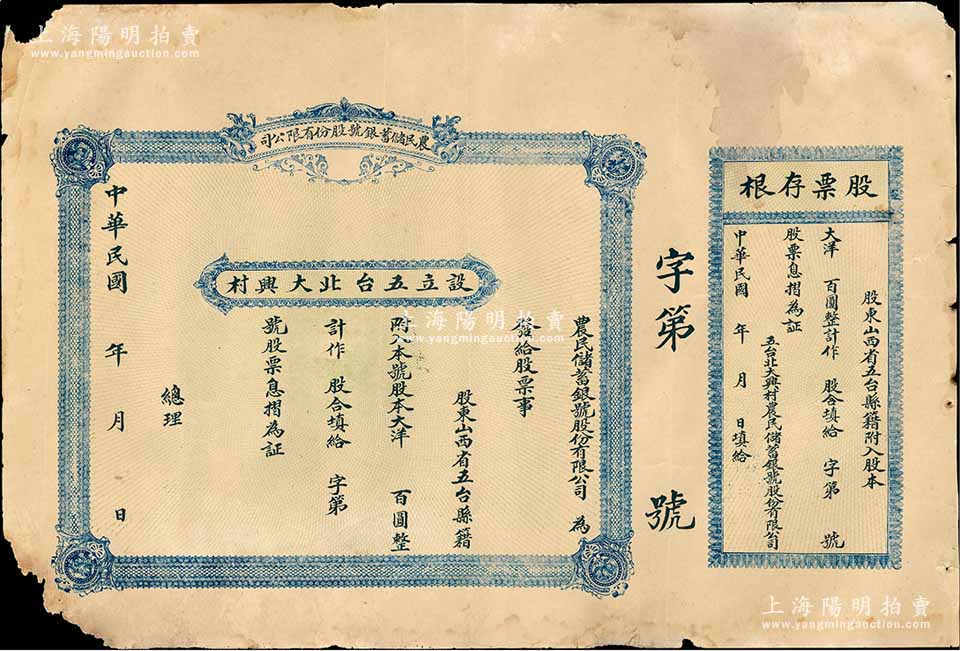 上海陽明拍賣
www.yangmingauction.com
股票存根
股東山西省五台縣籍附入股本
大洋 百圓整計作 股合填給 字第 號
股票息摺為証
五台北大興村農民儲蓄銀號股份有限公司
中華民國 年 月 日填給
字第 號
農民儲蓄銀號股份有限公司
設立五台北大興村
農民儲蓄銀號股份有限公司 為
發給股票事
股東山西省五台縣籍
附入本號股本大洋 百圓整
計作 股合填給 字第
號股票息摺為証
總理
中華民國 年 月 日
上海陽明拍賣
www.yangmingauction.com
上海陽明拍賣
www.yangmingauction.com